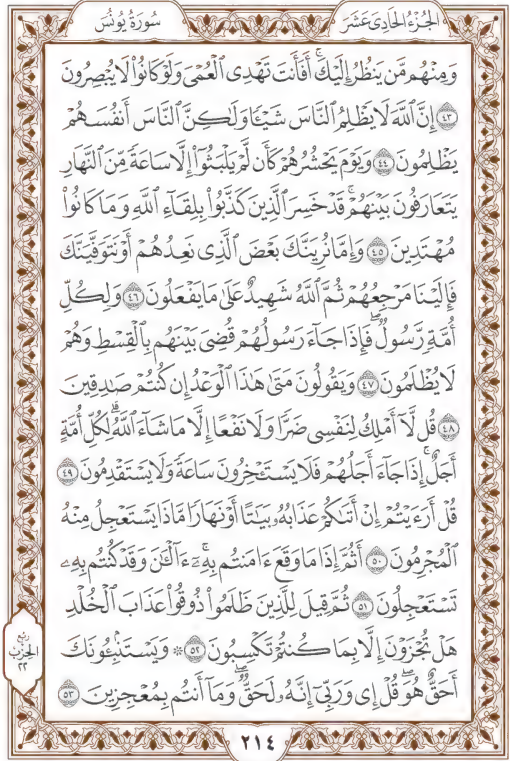 الجُزْءُ الحَادِى عَشَرَ
سُورَةُ يُونُسَ
وَمِنْهُم مَّن يَنظُرُ إِلَيْكَۚ أَفَأَنتَ تَهْدِى ٱلْعُمْىَ وَلَوْ كَانُوا۟ لَا يُبْصِرُونَ
٤٣ إِنَّ ٱللَّهَ لَا يَظْلِمُ ٱلنَّاسَ شَيْـًٔا وَلَـٰكِنَّ ٱلنَّاسَ أَنفُسَهُمْ
يَظْلِمُونَ ٤٤ وَيَوْمَ يَحْشُرُهُمْ كَأَن لَّمْ يَلْبَثُوٓا۟ إِلَّا سَاعَةً مِّنَ ٱلنَّهَارِ
يَتَعَارَفُونَ بَيْنَهُمْۚ قَدْ خَسِرَ ٱلَّذِينَ كَذَّبُوا۟ بِلِقَآءِ ٱللَّهِ وَمَا كَانُوا۟
مُهْتَدِينَ ٤٥ وَإِمَّا نُرِيَنَّكَ بَعْضَ ٱلَّذِى نَعِدُهُمْ أَوْ نَتَوَفَّيَنَّكَ
فَإِلَيْنَا مَرْجِعُهُمْ ثُمَّ ٱللَّهُ شَهِيدٌ عَلَىٰ مَا يَفْعَلُونَ ٤٦ وَلِكُلِّ
أُمَّةٍ رَّسُولٌۖ فَإِذَا جَآءَ رَسُولُهُمْ قُضِىَ بَيْنَهُم بِٱلْقِسْطِ وَهُمْ
لَا يُظْلَمُونَ ٤٧ وَيَقُولُونَ مَتَىٰ هَـٰذَا ٱلْوَعْدُ إِن كُنتُمْ صَـٰدِقِينَ
٤٨ قُل لَّآ أَمْلِكُ لِنَفْسِى ضَرًّا وَلَا نَفْعًا إِلَّا مَا شَآءَ ٱللَّهُۗ لِكُلِّ أُمَّةٍ
أَجَلٌۚ إِذَا جَآءَ أَجَلُهُمْ فَلَا يَسْتَـْٔخِرُونَ سَاعَةً وَلَا يَسْتَقْدِمُونَ ٤٩
قُلْ أَرَءَيْتُمْ إِنْ أَتَىٰكُمْ عَذَابُهُۥ بَيَـٰتًا أَوْ نَهَارًا مَّاذَا يَسْتَعْجِلُ مِنْهُ
ٱلْمُجْرِمُونَ ٥٠ أَثُمَّ إِذَا مَا وَقَعَ ءَامَنتُم بِهِۦٓۚ ءَآلْـَٔـٰنَ وَقَدْ كُنتُم بِهِۦ
تَسْتَعْجِلُونَ ٥١ ثُمَّ قِيلَ لِلَّذِينَ ظَلَمُوا۟ ذُوقُوا۟ عَذَابَ ٱلْخُلْدِ
هَلْ تُجْزَوْنَ إِلَّا بِمَا كُنتُمْ تَكْسِبُونَ ٥٢ ۞ وَيَسْتَنۢبِـُٔونَكَ
أَحَقٌّ هُوَۖ قُلْ إِى وَرَبِّىٓ إِنَّهُۥ لَحَقٌّۖ وَمَآ أَنتُم بِمُعْجِزِينَ ٥٣
رُبع
الحِزْبِ
٢٢
٢١٤